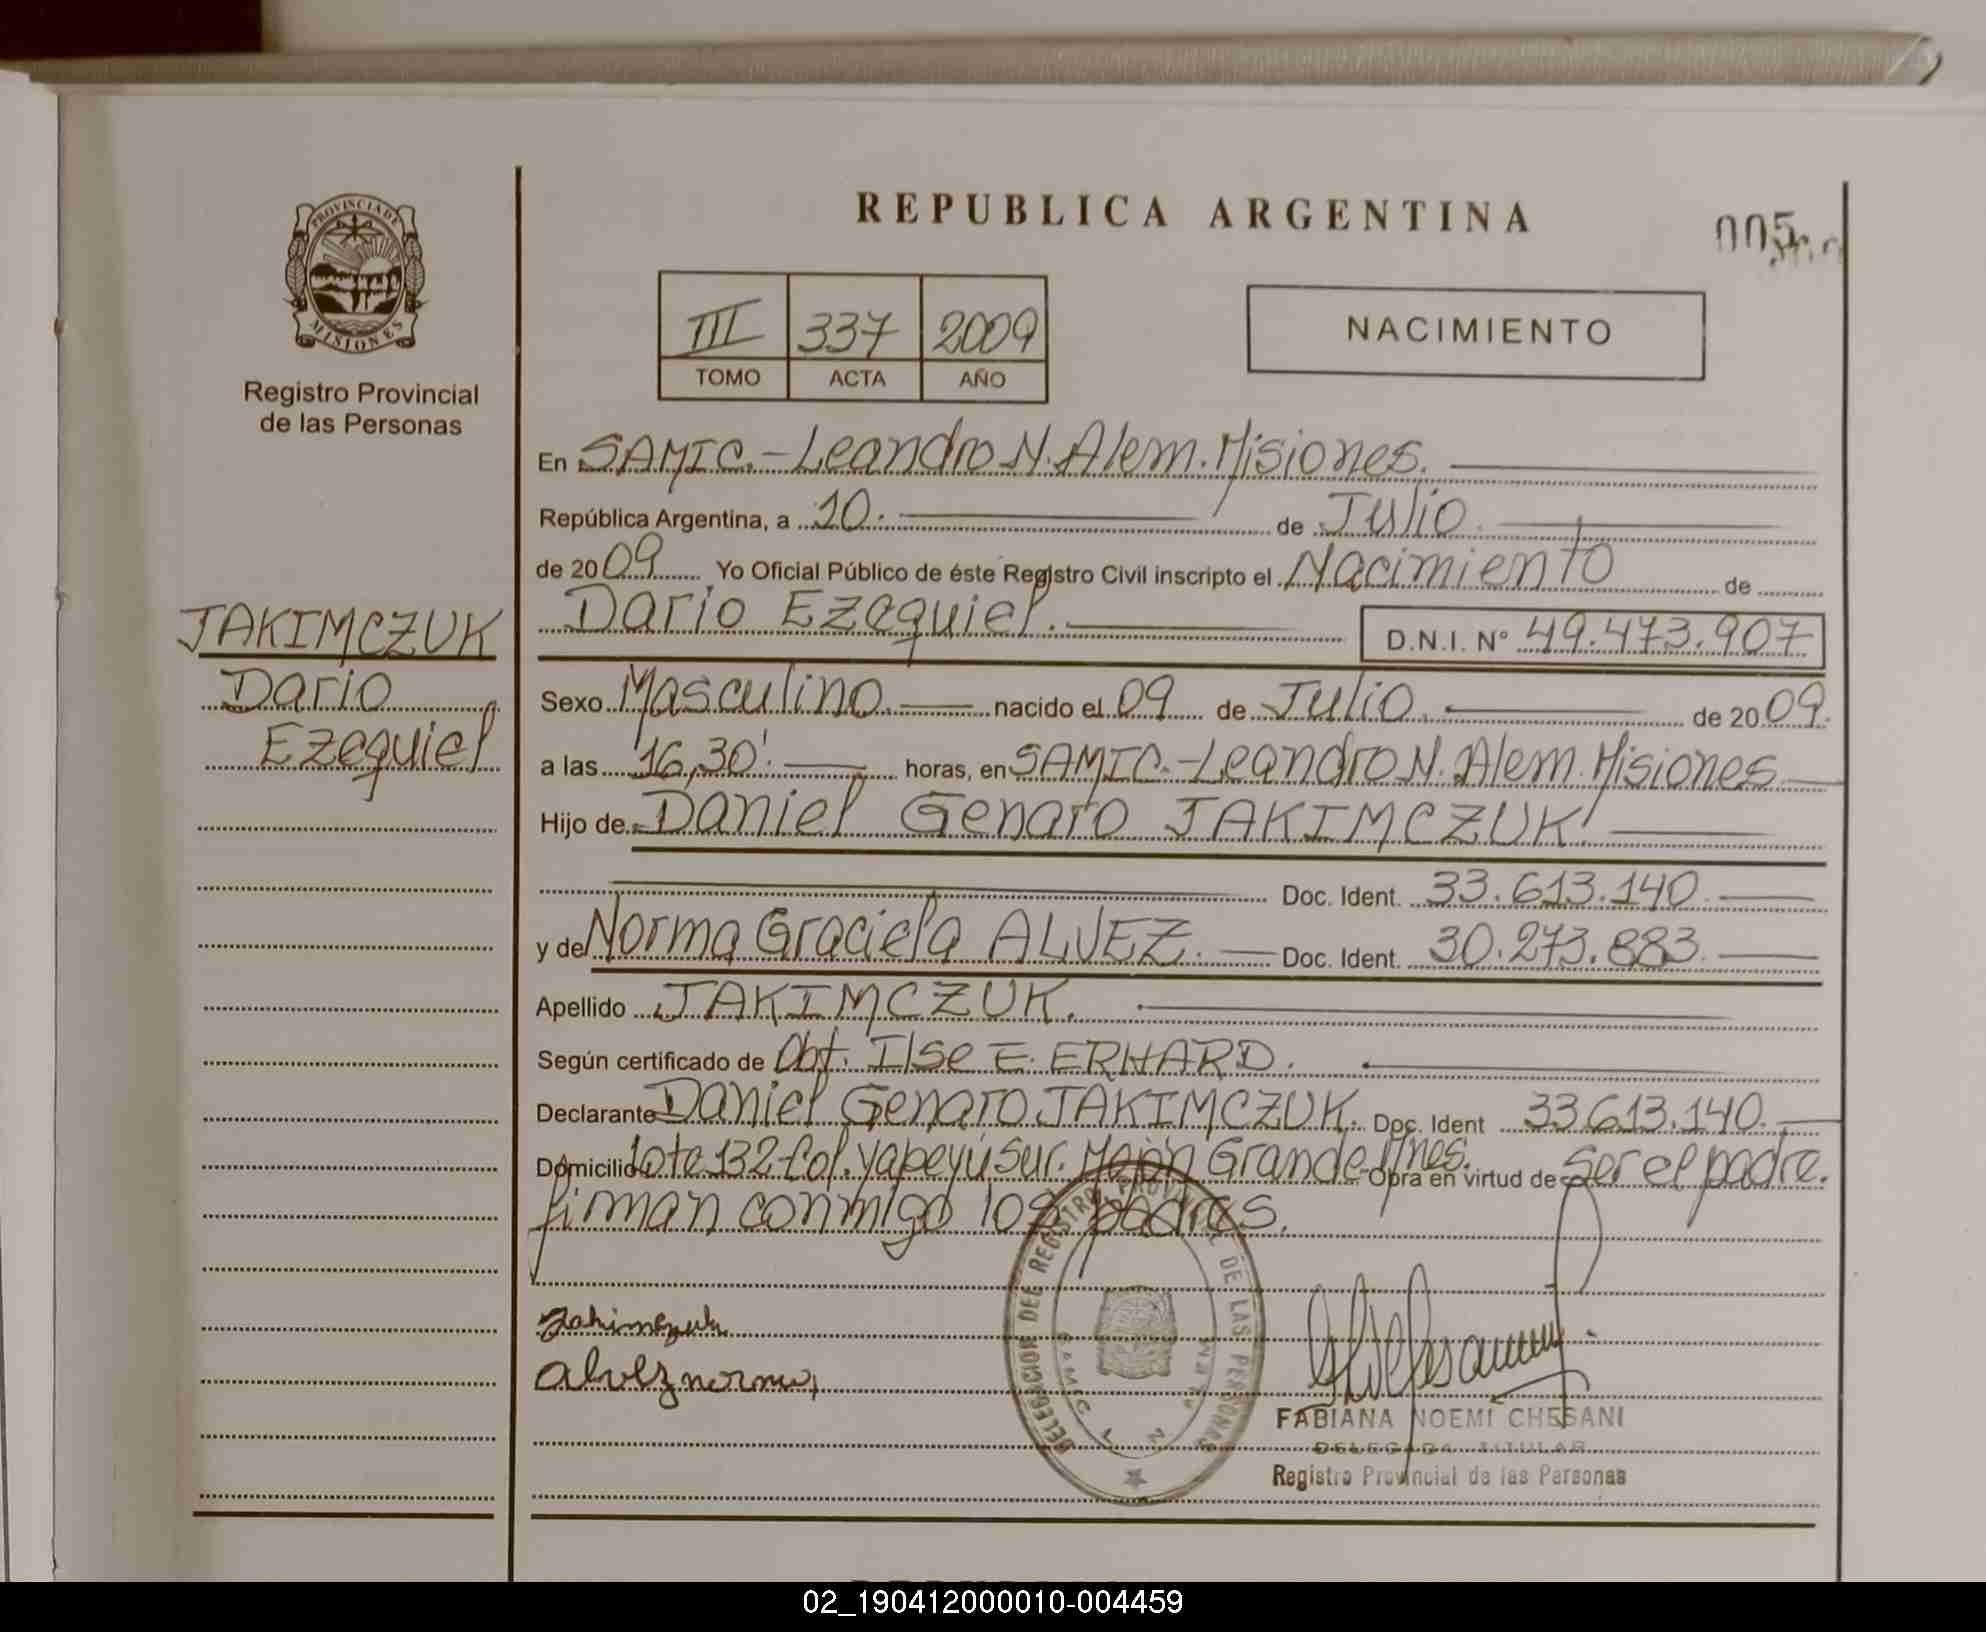 REPUBLICA ARGENTINA
005
PROVINCIA DE
MISIONES
Registro Provincial
de las Personas
III 337 2009
TOMO ACTA AÑO
NACIMIENTO
En SAMIC.-Leandro N. Alem. Misiones.
República Argentina, a 10. de Julio.
de 2009 Yo Oficial Público de éste Registro Civil inscripto el Nacimiento de
Dario Ezequiel. D.N.I. Nº 49.473.907
JAKIMCZUK
Dario
Ezequiel
Sexo Masculino. nacido el 09 de Julio. de 2009.
a las 16,30'. horas, en SAMIC.-Leandro N. Alem. Misiones
Hijo de Daniel Genaro JAKIMCZUK.
Doc. Ident. 33.613.140.
y de Norma Graciela ALVEZ. Doc. Ident. 30.273.883.
Apellido JAKIMCZUK.
Según certificado de Obt. Ilse E. ERHARD.
Declarante Daniel Genaro JAKIMCZUK. Doc. Ident 33.613.140.
Domicilio lote 132 Col. Yapeyú Sur. Mojón Grande Mnes. Obra en virtud de ser el padre.
firman conmigo los padres.
Jakimczuk
alvez norma
DELEGACION DEL REGISTRO PROVINCIAL DE LAS PERSONAS
SAMIC L N
FABIANA NOEMI CHESANI
DELEGADA TITULAR
Registro Provincial de las Personas
02_190412000010-004459